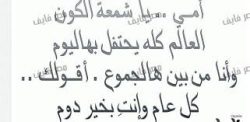 أمـي .. يا شمعة الكون
العالم كله يحتفل بهاليوم
وأنا من بين هالجموع . أقـولك ..
كل عام وأنتِ بخير دوم